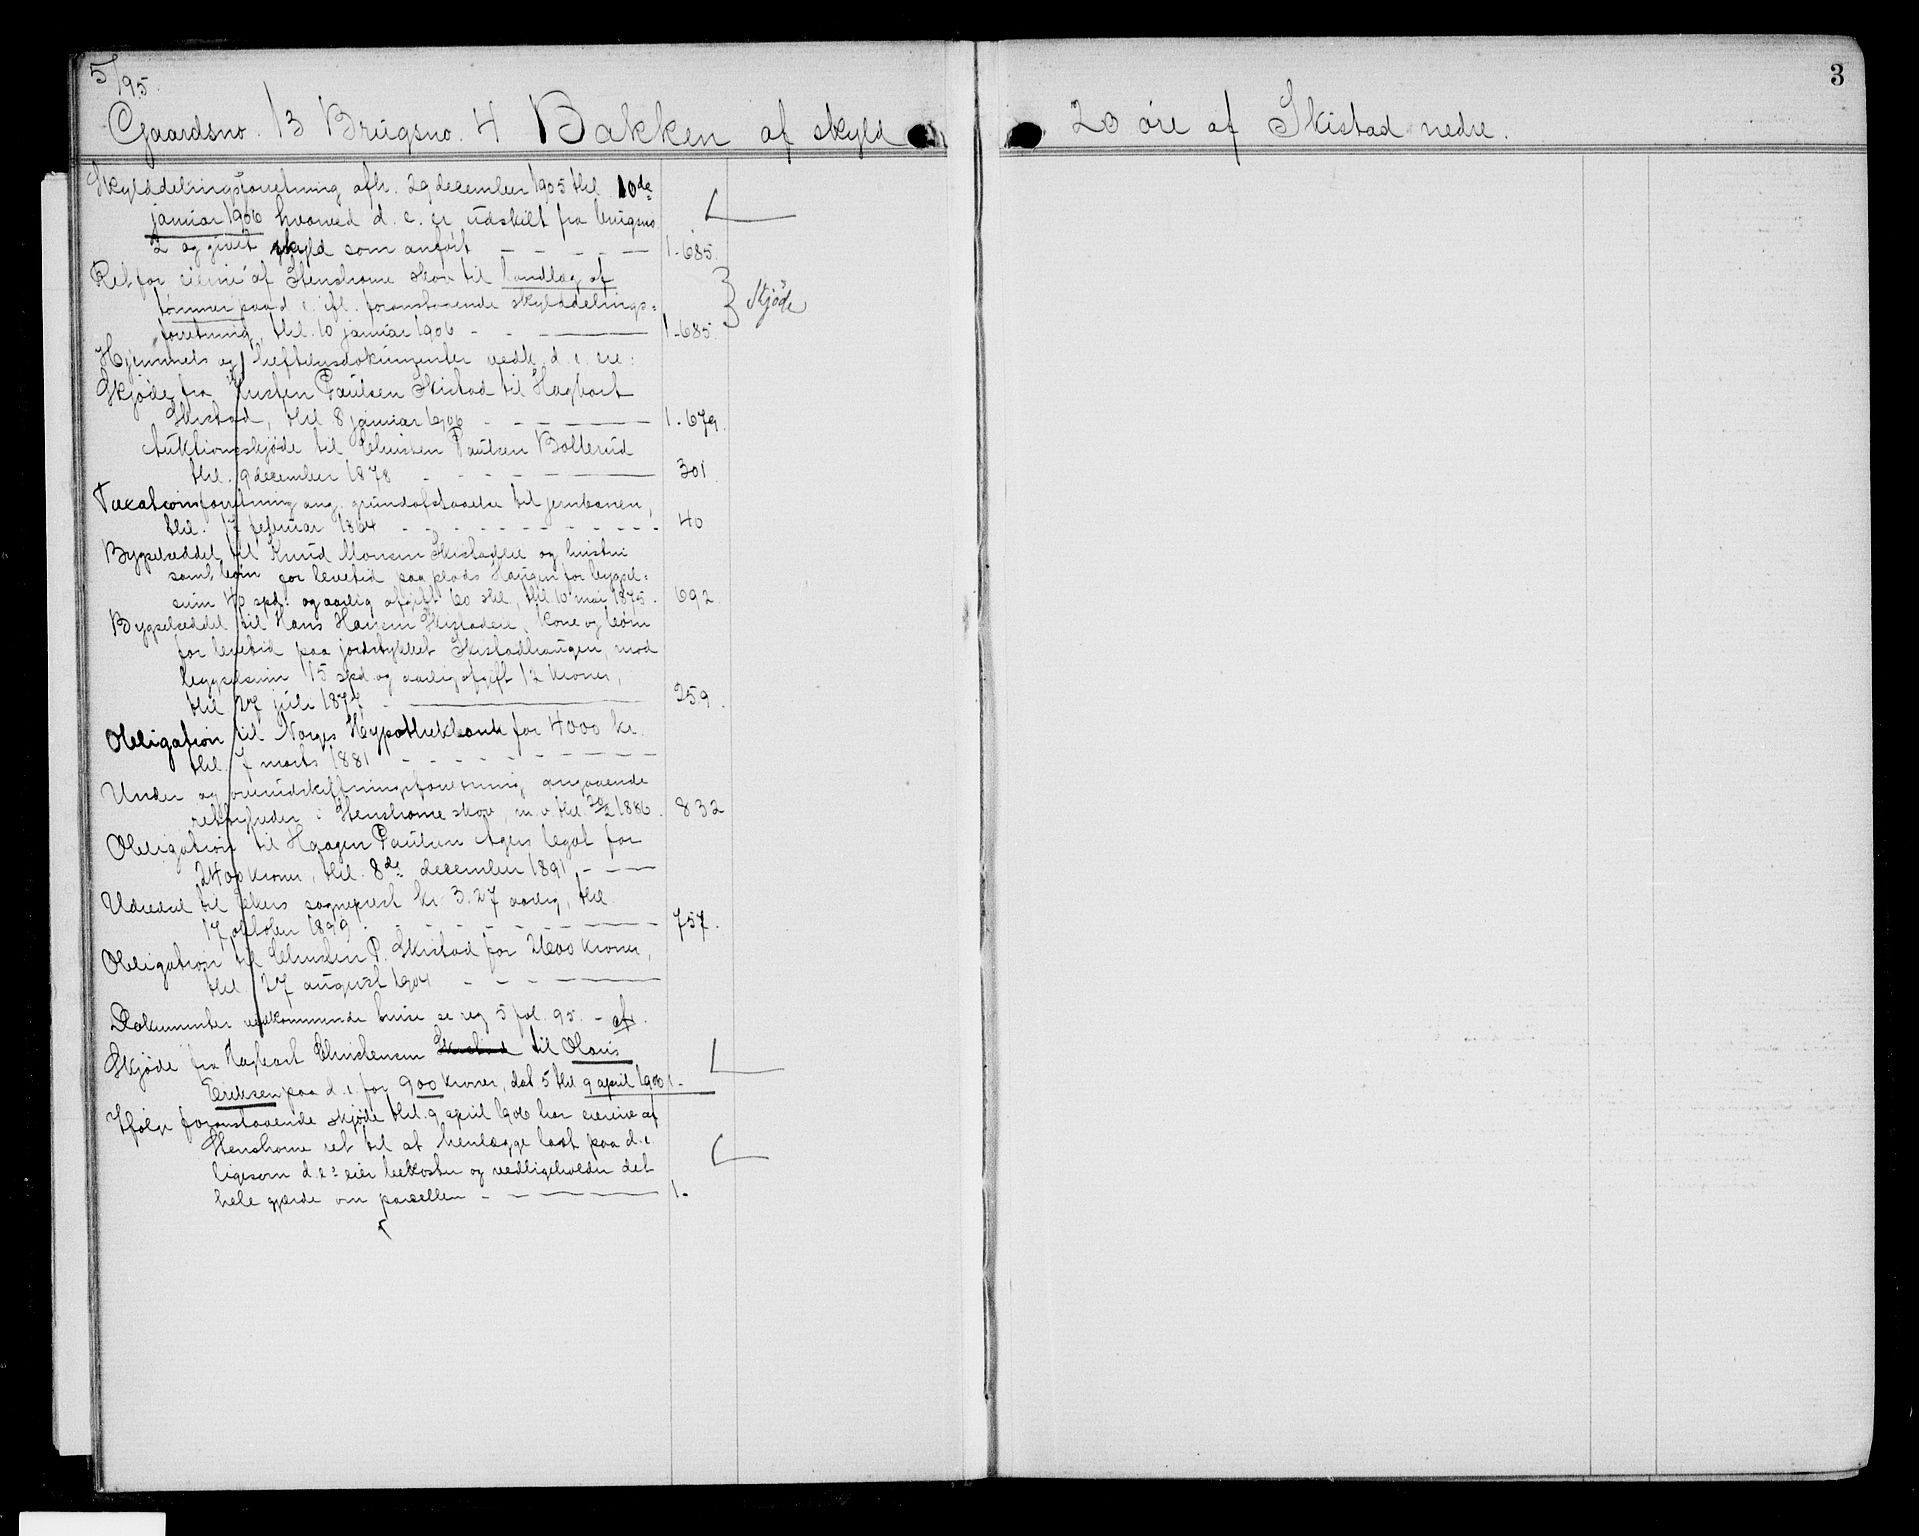 5/95.
3
Gaardsno. 13 Brugsno. 4 Bakken af skyld 20 øre af Skistad nedre.
Skylddelingsforretning afh. 29 december 1905 thl. 10de
januar 1906 hvorved d. e. er udskilt fra brugsno
2 og givet skyld som anført – – – – – 1-685.
Ret for eierne af Stenshorne skov til landlæg af
tømmer paa d. e. ifl. foranstaaende skylddelings=
forretning, thl. 10 januar 1906 – – 1-685.
Skjøde
Hjemmels og heftelsesdokumenter vedk. d. e. ere:
Skjøde fra Kristen Paulsen Skistad til Hagbart
Skistad, thl 8 januar 1906 – – – 1-679.
Auktionsskjøde til Christen Paulsen Bollerud
thl. 9 december 1878 – – – 301.
Taxationsforretning ang. grundafstaaelse til jernbanen,
thl. 17 februar 1864 – – – – – – – 40
Bygselseddel til Knud Monsen Skistadeie og hustru
samt børn for levetid paa plads Haugen for bygsel=
sum 40 spd. og aarlig afgift 60 skil, thl 10 mai 1875. 692
Bygselseddel til Hans Hansen Skistadeie, kone og børn
for levetid paa jordstykket Skistadhaugen, mod
bygselsum 15 spd og aarlig afgift 12 kroner,
thl 27 juli 1877 – 259.
Obligation til Norges Hypothekbank for 4000 kr.
thl. 7 marts 1881 – – – – – – –
Under og overudskiftningsforretning angaaende
rettigheder i Stenshorne skov, m. v. thl. 20/2 1886. 832
Obligation til Haagen Paulsen Agers legat for
2400 kroner, thl. 8de december 1891 – – –
Udredsel til Lekers sogneprest kr. 3.27 aarlig, thl.
17 oktober 1899. – – – – – 757.
Obligation til Christen P. Skistad for 2600 kroner,
thl. 27 august 1904 – – –
Dokumenter vedkommende huse se reg 5 fol. 95. – af.
Skjøde fra Hagbart Christensen Skistad til Olaus
Eriksen paa d. e for 900 kroner, dat 5 thl 9 april 1906 1-
Ifølge foranstaaende skjøde thl. 9 april 1906 har eierne af
Stenshorne ret til at henlægge last paa d. e
ligesom d. e.s eier bekoster og vedligeholder det
hele gjerde om parcellen – – 1-